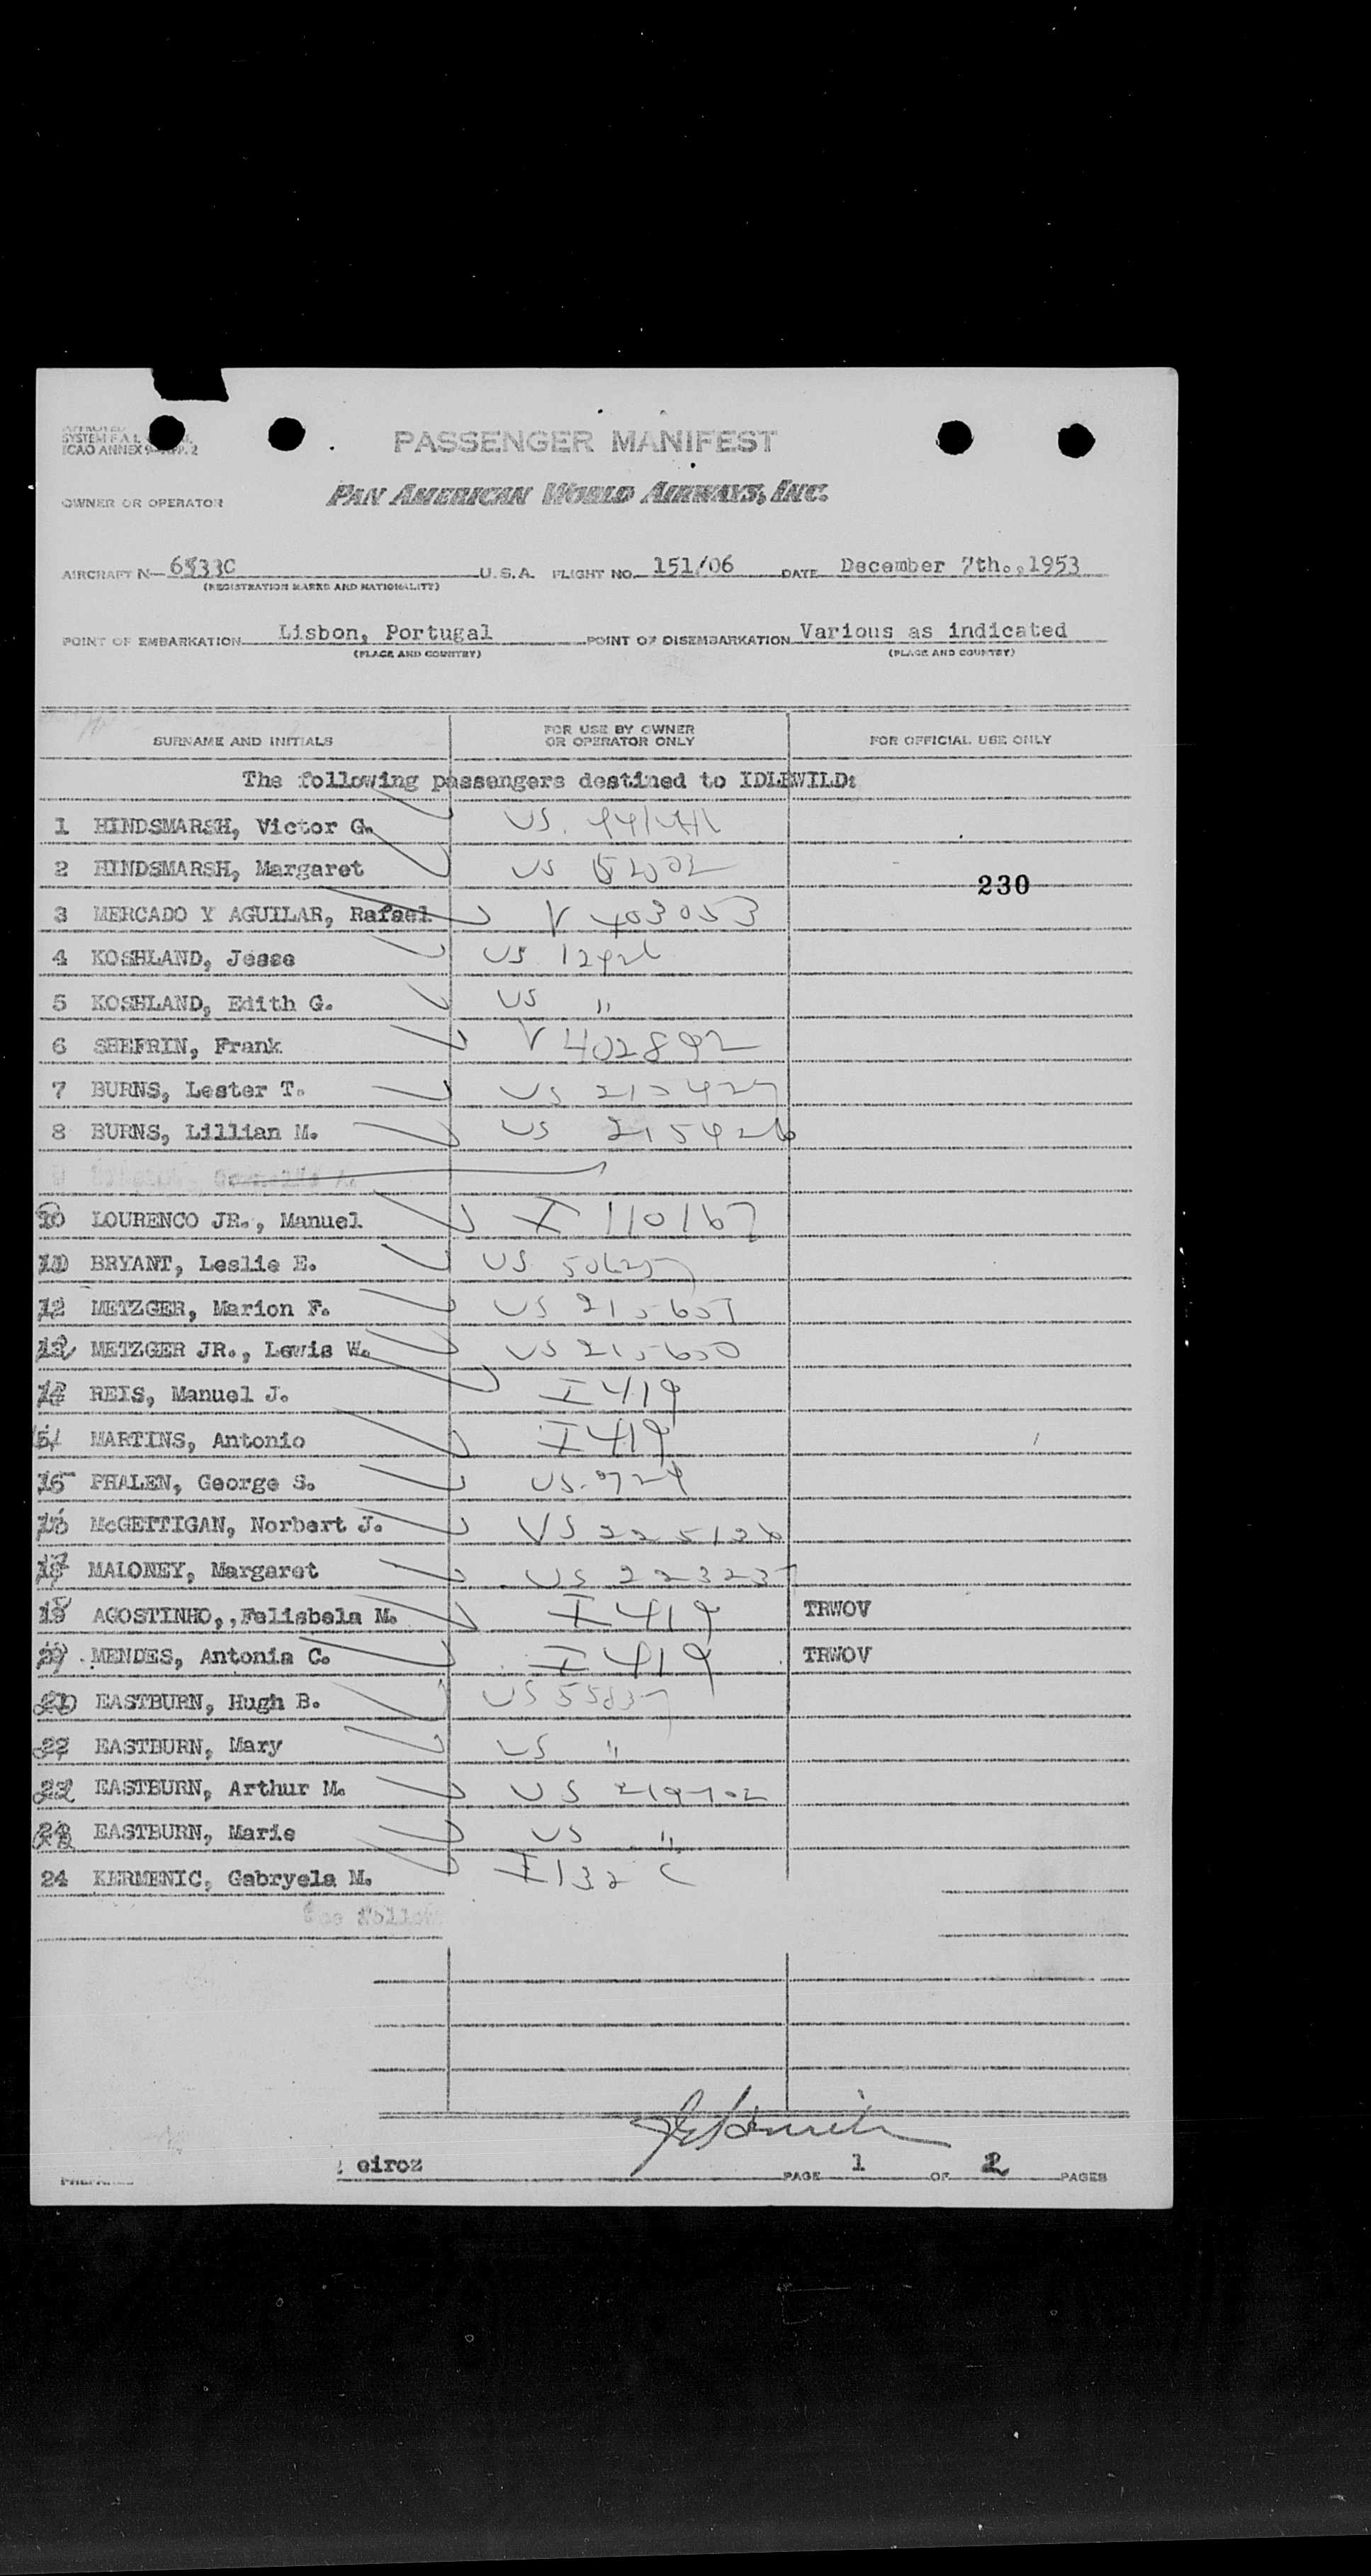 SYSTEM F.A.L.
ICAO ANNEX 9 APP. 2
PASSENGER MANIFEST
OWNER OR OPERATOR PAN AMERICAN WORLD AIRWAYS, INC.
AIRCRAFT N— 6533C U.S.A. FLIGHT NO. 151/06 DATE December 7th.,1953
(REGISTRATION MARKS AND NATIONALITY)
POINT OF EMBARKATION Lisbon, Portugal POINT OF DISEMBARKATION Various as indicated
(PLACE AND COUNTRY) (PLACE AND COUNTRY)
SURNAME AND INITIALS FOR USE BY OWNER OR OPERATOR ONLY FOR OFFICIAL USE ONLY
The following passengers destined to IDLEWILD:
1 HINDSMARSH, Victor G. US
2 HINDSMARSH, Margaret US
230
3 MERCADO Y AGUILAR, Rafael V 403053
4 KOSHLAND, Jesse US
5 KOSHLAND, Edith G. US "
6 SHEFRIN, Frank V 402892
7 BURNS, Lester T. US
8 BURNS, Lillian M. US 215426
LOURENCO JR., Manuel I 110167
BRYANT, Leslie E. US
METZGER, Marion F. US
METZGER JR., Lewis W. US 215650
REIS, Manuel J. I 419
MARTINS, Antonio I 419
PHALEN, George S. US
McGETTIGAN, Norbert J. US 225126
MALONEY, Margaret US 223237
AGOSTINHO,,Felisbela M. I 419 TRWOV
MENDES, Antonia C. I 419 TRWOV
EASTBURN, Hugh B. US
EASTBURN, Mary US "
EASTBURN, Arthur M. US
EASTBURN, Marie US "
24 KERMENIC, Gabryela M. I 132 C
eiroz
PAGE 1 OF 2 PAGES